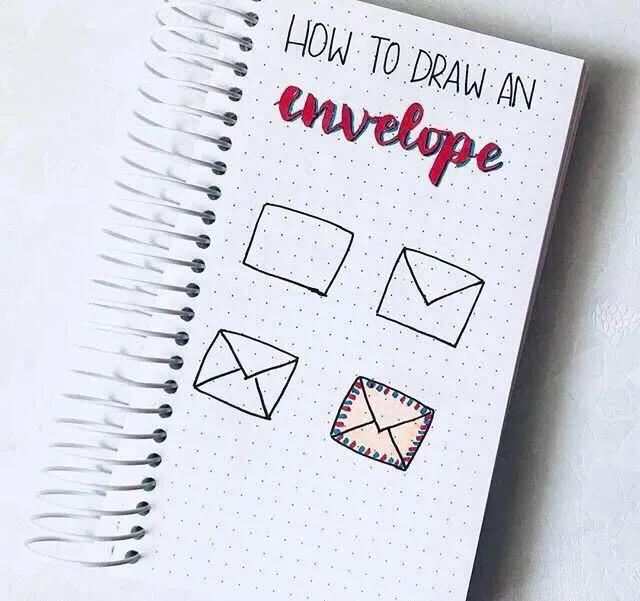 HOW TO DRAW AN
envelope